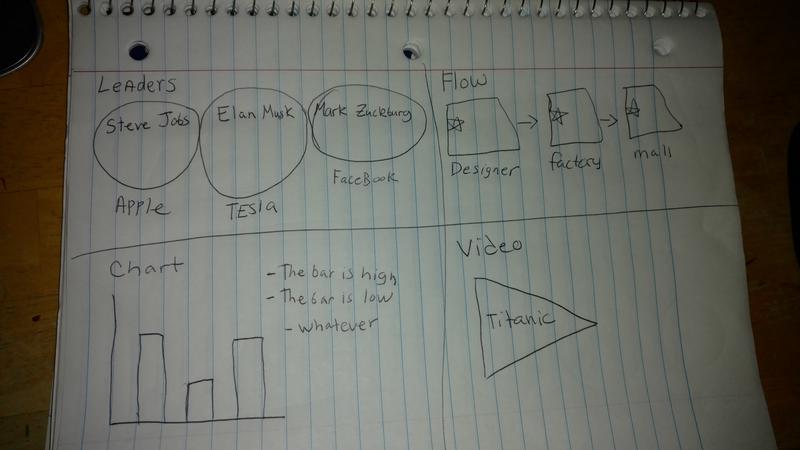 Leaders
Steve Jobs
Elan Musk
Mark Zuckburg
Apple
TESla
FaceBook
Flow
Designer
factory
mall
Chart
- The bar is high
- The bar is low
- whatever
Video
Titanic